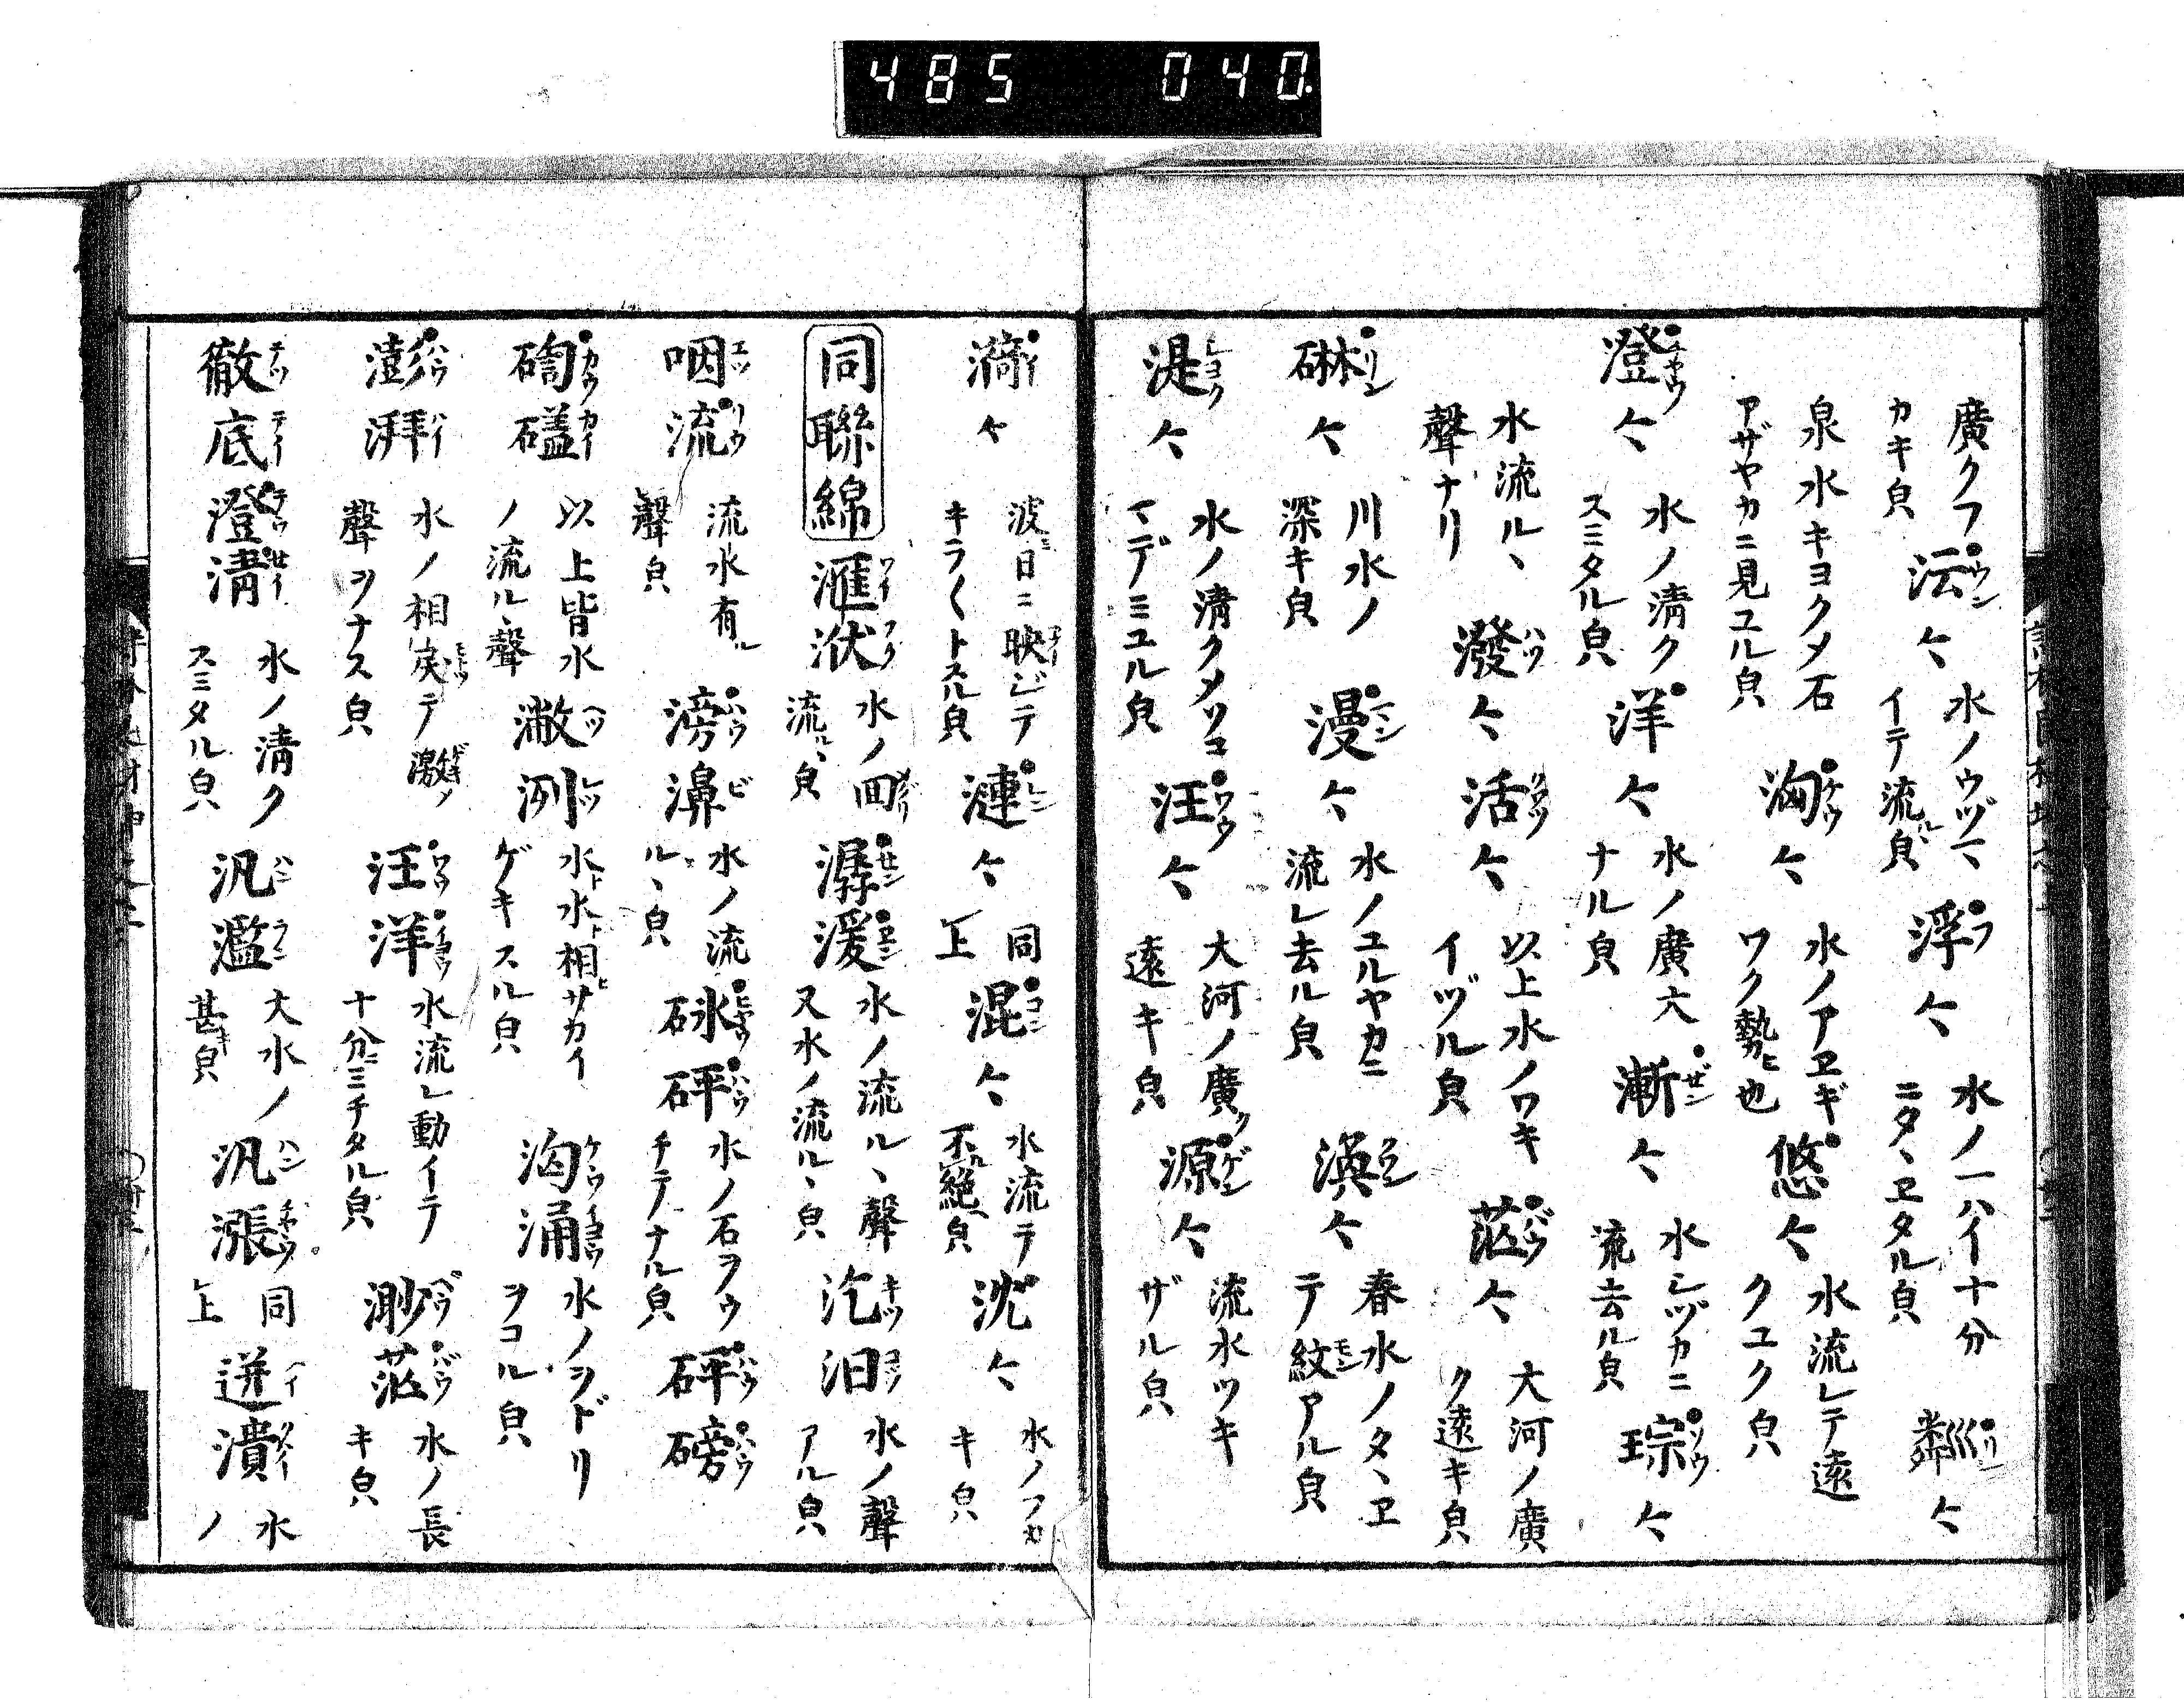 485 040
廣クフカキ㒵 沄々 水ノウヅマイテ流ル㒵 浮々 水ノ一ハイ十分ニタヽヱタル㒵 粼々
泉水キヨクメ石アザヤカニ見ユル㒵 洶々 水ノアヱギワク勢ヒ也 悠々 水流レテ遠クユク㒵
澄々 水ノ清クスミタル㒵 洋々 水ノ廣大ナル㒵 漸々 水シヅカニ流去ル㒵 琮々
水流ルヽ聲ナリ 潑々 活々 以上水ノワキイヅル㒵 茫々 大河ノ廣ク遠キ㒵
碄々 川水ノ深キ㒵 漫々 水ノユルヤカニ流レ去ル㒵 渙々 春水ノタヽヱテ紋アル㒵
湜々 水ノ清クメソコマデミユル㒵 汪々 大河ノ廣ク遠キ㒵 源々 流水ツキザル㒵
漪々 波日ニ映ジテキラ〱トスル㒵 漣々 同上 混々 水流テ不絶㒵 沈々 水ノフカキ㒵
同聯綿 滙洑 水ノ回リ流ルヽ㒵 潺湲 水ノ流ルヽ聲又水ノ流ルヽ㒵 汔汩 水ノ聲アル㒵
咽流 流水有ル聲㒵 滂濞 水ノ流ルヽ㒵 砯砰 水ノ石ヲウチテナル㒵 砰磅
礚 以上皆水ノ流ルヽ聲 潎洌 水ト水ト相ヒサカイゲキスル㒵 洶涌 水ノヲドリヲコル㒵
澎湃 水ノ相戻テ激ノ聲ヲナス㒵 汪洋 水流レ動イテ十分ニミチタル㒵 渺茫 水ノ長キ㒵
徹底澄清 水ノ清クスミタル㒵 汎濫 大水ノ甚キ㒵 汎漲 同上 迸潰 水ノ